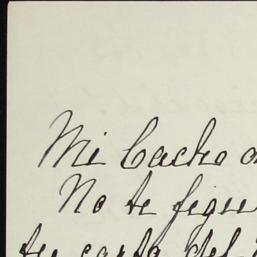 Mi Cacho
No te figu
tu carta del